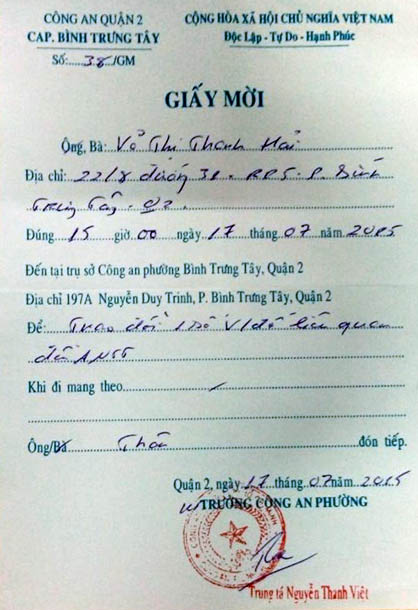 CÔNG AN QUẬN 2
CAP. BÌNH TRƯNG TÂY
Số: 38 /GM
CỘNG HÒA XÃ HỘI CHỦ NGHĨA VIỆT NAM
Độc Lập - Tự Do - Hạnh Phúc
GIẤY MỜI
Ông, Bà: Võ Thị Thanh Hải
Địa chỉ: 22/8 đường 31 - KP5 - P. Bình
Trưng Tây - Q2.
Đúng 15 giờ 00 ngày 17 tháng 07 năm 2015
Đến tại trụ sở Công an phường Bình Trưng Tây, Quận 2
Địa chỉ 197A Nguyễn Duy Trinh, P. Bình Trưng Tây, Quận 2
Để: Trao đổi 1 số vấn đề liên quan
đến ANTT
Khi đi mang theo
Ông/Bà Thân đón tiếp.
Quận 2, ngày 17 tháng 07 năm 2015
TRƯỞNG CÔNG AN PHƯỜNG
Trung tá Nguyễn Thanh Việt